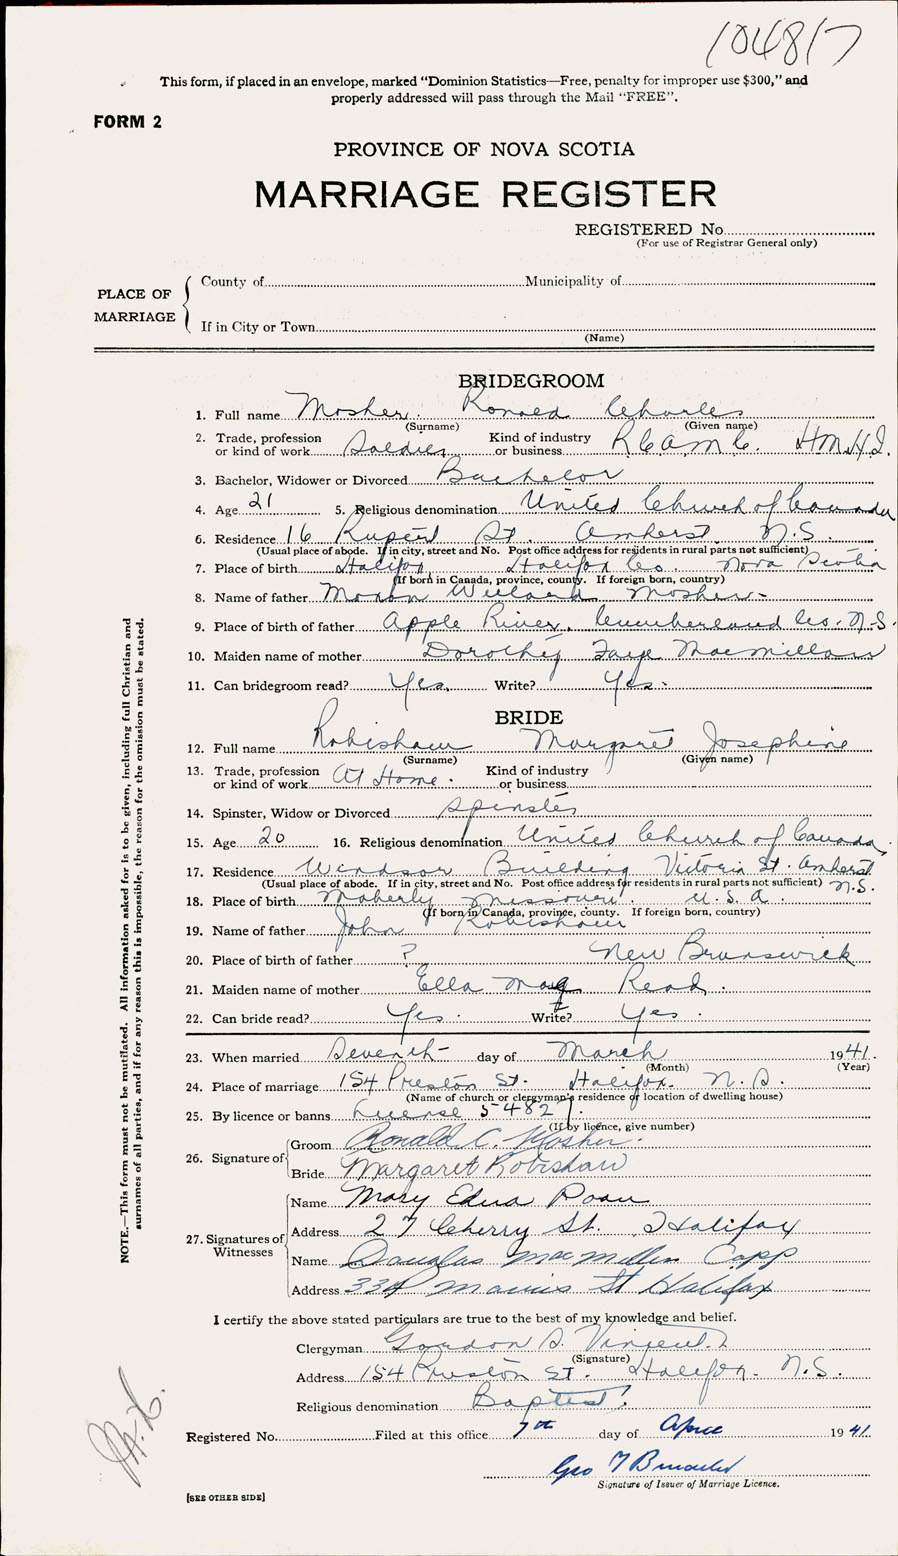 104817
This form, if placed in an envelope, marked "Dominion Statistics—Free, penalty for improper use $300," and
properly addressed will pass through the Mail "FREE".
FORM 2
PROVINCE OF NOVA SCOTIA
MARRIAGE REGISTER
REGISTERED No
(For use of Registrar General only)
PLACE OF MARRIAGE
County of Municipality of
If in City or Town
(Name)
BRIDEGROOM
1. Full name Mosher Ronald Charles
(Surname) (Given name)
2. Trade, profession or kind of work Soldier Kind of industry or business R.C.A.M.C.
3. Bachelor, Widower or Divorced Bachelor
4. Age 21 5. Religious denomination United Church of Canada
6. Residence 16 Rupert St. Amherst N.S.
(Usual place of abode. If in city, street and No. Post office address for residents in rural parts not sufficient)
7. Place of birth Halifax Halifax Co. Nova Scotia
(If born in Canada, province, county. If foreign born, country)
8. Name of father Willard Mosher
9. Place of birth of father Apple River, Cumberland Co. N.S.
10. Maiden name of mother Dorothy Faye MacMillan
11. Can bridegroom read? Yes. Write? Yes.
BRIDE
12. Full name Robishaw Margaret Josephine
(Surname) (Given name)
13. Trade, profession or kind of work At Home. Kind of industry or business
14. Spinster, Widow or Divorced Spinster
15. Age 20 16. Religious denomination United Church of Canada
17. Residence Windsor Building Victoria St. Amherst
(Usual place of abode. If in city, street and No. Post office address for residents in rural parts not sufficient) N.S.
18. Place of birth Moberly Missouri. U.S.A.
(If born in Canada, province, county. If foreign born, country)
19. Name of father John Robishaw
20. Place of birth of father ? New Brunswick
21. Maiden name of mother Ella May Read.
22. Can bride read? Yes. Write? Yes.
23. When married Seventh day of March 1941.
(Month) (Year)
24. Place of marriage 154 Preston St. Halifax. N.S.
(Name of church or clergyman's residence or location of dwelling house)
25. By licence or banns License 54827.
(If by licence, give number)
26. Signature of
Groom Ronald C. Mosher.
Bride Margaret Robishaw
27. Signatures of Witnesses
Name Mary Edna
Address 27 Cherry St. Halifax
Name Douglas MacMillan Copp
Address St Halifax
I certify the above stated particulars are true to the best of my knowledge and belief.
Clergyman Gordon Vincent.
(Signature)
Address 154 Preston St. Halifax. N.S.
Religious denomination Baptist
Registered No. Filed at this office 7th day of April 1941
Geo
Signature of Issuer of Marriage Licence.
[SEE OTHER SIDE]
NOTE.—This form must not be mutilated. All information asked for is to be given, including full Christian and
surnames of all parties, and if for any reason this is impossible, the reason for the omission must be stated.